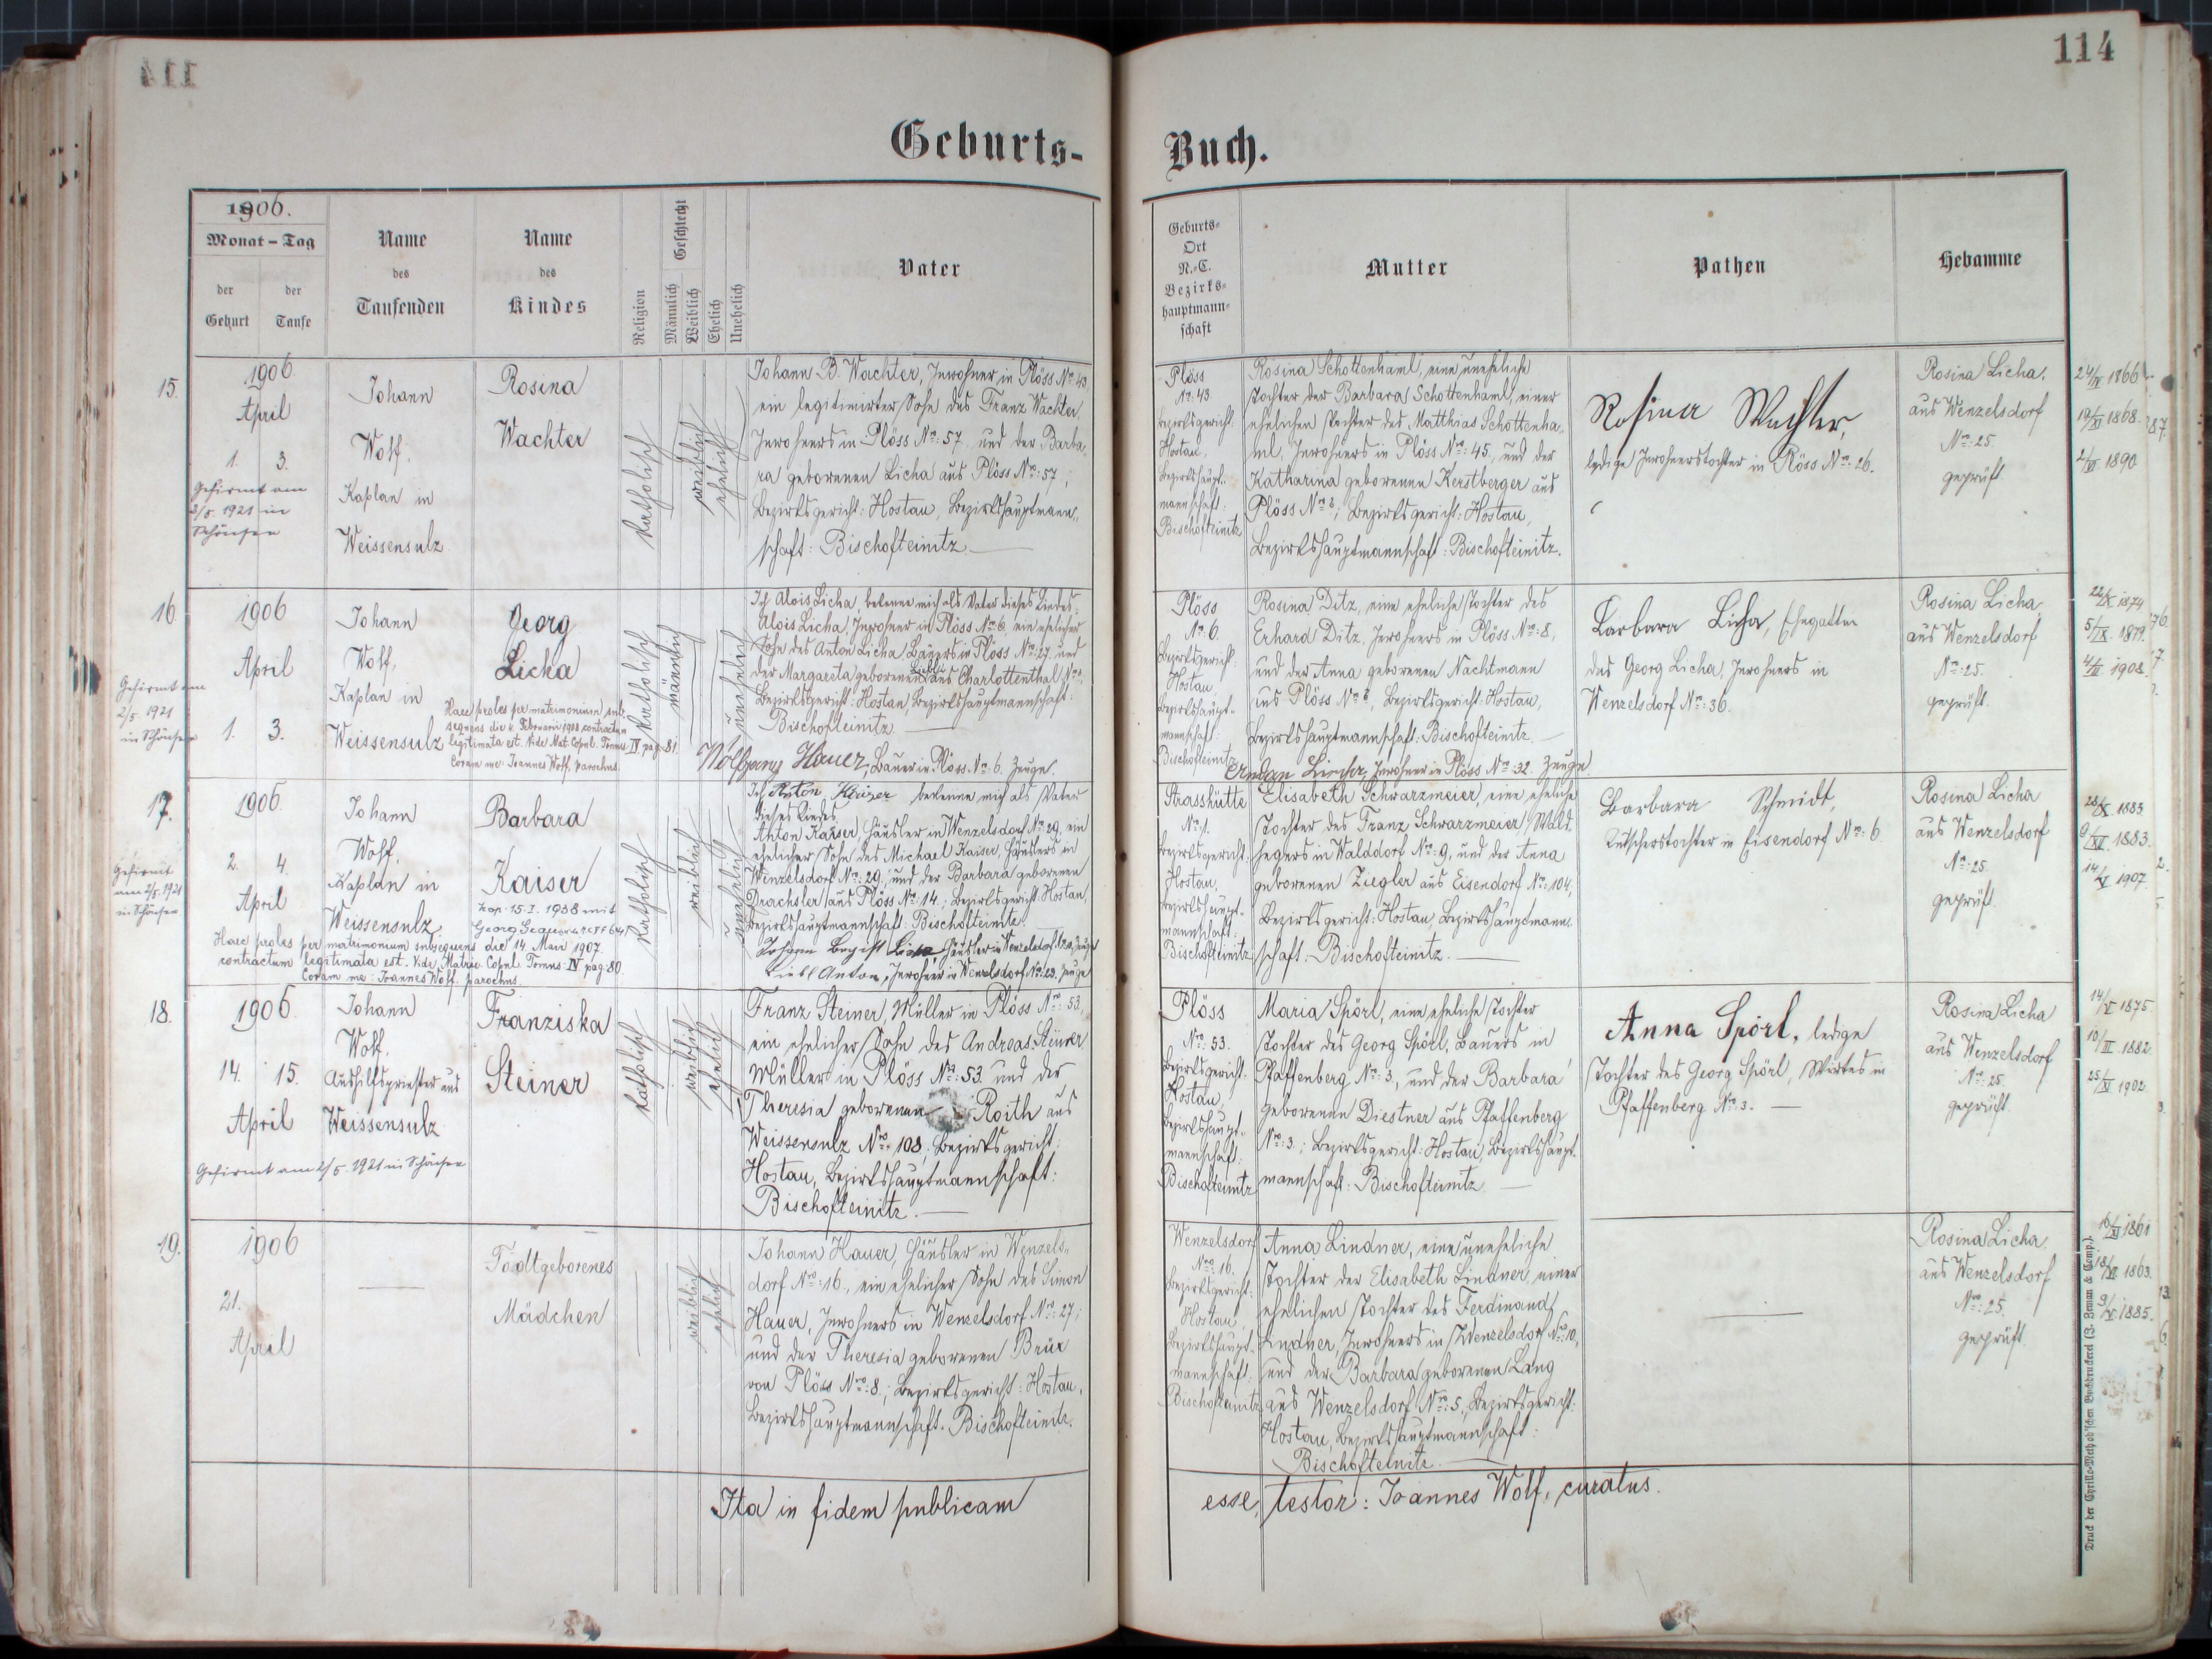 114
Geburts-
Buch.
1906.
Monat – Tag
der
Geburt
der
Taufe
Name
des
Taufenden
Name
des
Kindes
Religion
Geschlecht
Männlich
Weiblich
Ehelich
Unehelich
Vater
Geburts-
Ort
N.-C.
Bezirks-
hauptmann-
schaft
Mutter
Pathen
Hebamme
15.
1906.
April
1. 3.
Gefirmt am
2/5. 1921 in
Johann
Wolf,
Kaplan in
Weissensulz
Rosina
Wachter
katholisch
weiblich
ehelich
Johann B. Wachter, Inwohner in Plöss Nro. 43,
ein legitimirter Sohn des Franz Wachter,
Inwohners in Plöss Nro: 57. und der Barba-
ra geborenen Licha aus Plöss Nro: 57;
Bezirksgericht: Hostau, Bezirkshauptmann-
schaft: Bischofteinitz.
Plöss
No: 43.
Bezirksgericht:
Hostau,
Bezirkshaupt-
mannschaft:
Bischofteinitz
Rosina Schottenhaml, eine uneheliche
Tochter der Barbara Schottenhaml, einer
ehelichen Tochter des Matthias Schottenha-
ml, Inwohners in Plöss Nro: 45, und der
Katharina geborenen Kerstberger aus
Plöss Nro ; Bezirksgericht: Hostau,
Bezirkshauptmannschaft: Bischofteinitz.
Rosina Wachter,
ledige Inwohnerstochter in Plöss Nro: 26.
Rosina Licha,
aus Wenzelsdorf
Nro: 25
geprüft.
1866
1868.
1890
16.
1906
April
1. 3.
Gefirmt am
2/5. 1921
Johann
Wolf,
Kaplan in
Weissensulz
Georg
Licha
Haec proles per matrimonium sub-
sequens die 4. Februarii 1908 contractum
legitimata est. Vide Mat. Copul. Tomus IV. pag: 81.
Coram me: Joannes Wolf, parochus.
katholisch
männlich
unehelich
Ich Alois Licha, bekenne mich als Vater dieses Kindes.
Alois Licha, Inwohner in Plöss Nro 6, ein ehelicher
Sohn des Anton Licha Bauers in Plöss No: 27 und
der Margareta geborenen aus Charlottenthal
Bezirksgericht: Hostau, Bezirkshauptmannschaft:
Bischofteinitz.
Wolfgang Hauer, Bauer in Plöss. No: 6. Zeuge.
Plöss
No. 6.
Bezirksgericht:
Hostau,
Bezirkshaupt-
mannschaft:
Bischofteinitz
Rosina Ditz, eine eheliche Tochter des
Erhard Ditz, Inwohners in Plöss Nro: 8,
und der Anna geborenen Nachtmann
aus Plöss Nro 8, Bezirksgericht: Hostau,
Bezirkshauptmannschaft: Bischofteinitz.
Inwohner in Plöss Nro: 32. Zeuge
Barbara Licha, Ehegattin
des Georg Licha, Inwohners in
Wenzelsdorf Nro: 36.
Rosina Licha
aus Wenzelsdorf
Nro: 25.
geprüft.
1874
1879.
1908.
17.
1906.
2. 4.
April
Gefirmt
am 2/5. 1921
Johann
Wolf,
Kaplan in
Weissensulz
Barbara
Kaiser
kop. 15. I. 1938 mit
Haec proles per matrimonium subsequens die 14. Maii 1907
contractum legitimata est. Vide Matric. Copul. Tomus: IV pag: 80.
Coram me: Joannes Wolf, parochus.
katholisch
weiblich
unehelich
Ich Anton Kaiser bekenne mich als Vater
dieses Kindes.
Anton Kaiser, Häusler in Wenzelsdorf Nro 29, ein
ehelicher Sohn des Michael Kaiser, Häuslers in
Wenzelsdorf Nro: 29, und der Barbara geborenen
Drachsler aus Plöss Nro: 14.; Bezirksgericht: Hostau,
Bezirkshauptmannschaft: Bischofteinitz.
Häusler in Wenzelsdorf Zeuge
Liebl Anton, Inwohner in Wenzelsdorf No: 23. Zeuge
Strasshütte
No 1.
Bezirksgericht:
Hostau,
Bezirkshaupt-
mannschaft:
Bischofteinitz
Elisabeth Schwarzmeier, eine eheliche
Tochter des Franz Schwarzmeier, Wald-
hegers in Walddorf No: 9, und der Anna
geborenen Ziegler aus Eisendorf No: 104,
Bezirksgericht: Hostau, Bezirkshauptmann-
schaft: Bischofteinitz.
Barbara Schmidt,
Kutscherstochter in Eisendorf Nro: 6
Rosina Licha
aus Wenzelsdorf
No: 25.
geprüft.
1883
1883.
1907.
18.
1906.
14. 15.
April
Gefirmt am 2/5. 1921 in
Johann
Wolf.
Aushilfspriester aus
Weissensulz
Franziska
Steiner
katholisch
weiblich
ehelich
Franz Steiner, Müller in Plöss Nro: 53,
ein ehelicher Sohn des Andreas Steiner
Müller in Plöss Nro: 53. und der
Theresia geborenen Roith aus
Weissensulz Nro. 108. Bezirksgericht:
Hostau, Bezirkshauptmannschaft:
Bischofteinitz.
Plöss
Nro: 53.
Bezirksgericht:
Hostau,
Bezirkshaupt-
mannschaft:
Bischofteinitz
Maria Spörl, eine eheliche Tochter
Tochter des Georg Spörl, Bauers in
Pfaffenberg Nro: 3, und der Barbara
geborenen Diestner aus Pfaffenberg
Nro: 3.; Bezirksgericht: Hostau, Bezirkshaupt-
mannschaft: Bischofteinitz.
Anna Spörl, ledige
Tochter des Georg Spörl, Wirtes in
Pfaffenberg No 3.
Rosina Licha
aus Wenzelsdorf
No: 25.
geprüft.
1875.
1882.
1902.
19.
1906
21.
April
Todtgeborenes
Mädchen
weiblich
ehelich
Johann Hauer, Häusler in Wenzels-
dorf Nro: 16., ein ehelicher Sohn des Simon
Hauer, Inwohners in Wenzelsdorf Nro: 27;
und der Theresia geborenen Brüx
von Plöss Nro: 8.; Bezirksgericht: Hostau,
Bezirkshauptmannschaft: Bischofteinitz.
Wenzelsdorf
Nro: 16.
Bezirksgericht:
Hostau,
Bezirkshaupt-
mannschaft:
Bischofteinitz
Anna Lindner, eine uneheliche
Tochter der Elisabeth Lindner, einer
ehelichen Tochter des Ferdinand
Lindner, Inwohners in Wenzelsdorf Nro: 10,
und der Barbara geborenen Lang
aus Wenzelsdorf Nro: 5., Bezirksgericht:
Hostau, Bezirkshauptmannschaft:
Bischofteinitz.
Rosina Licha,
aus Wenzelsdorf
Nro: 25.
geprüft.
1861
1863.
1885.
Ita in fidem publicam
esse, testor: Joannes Wolf, curatus.
Druck der Cyrillo-Method'schen Buchdruckerei (J. Zeman & Comp.).